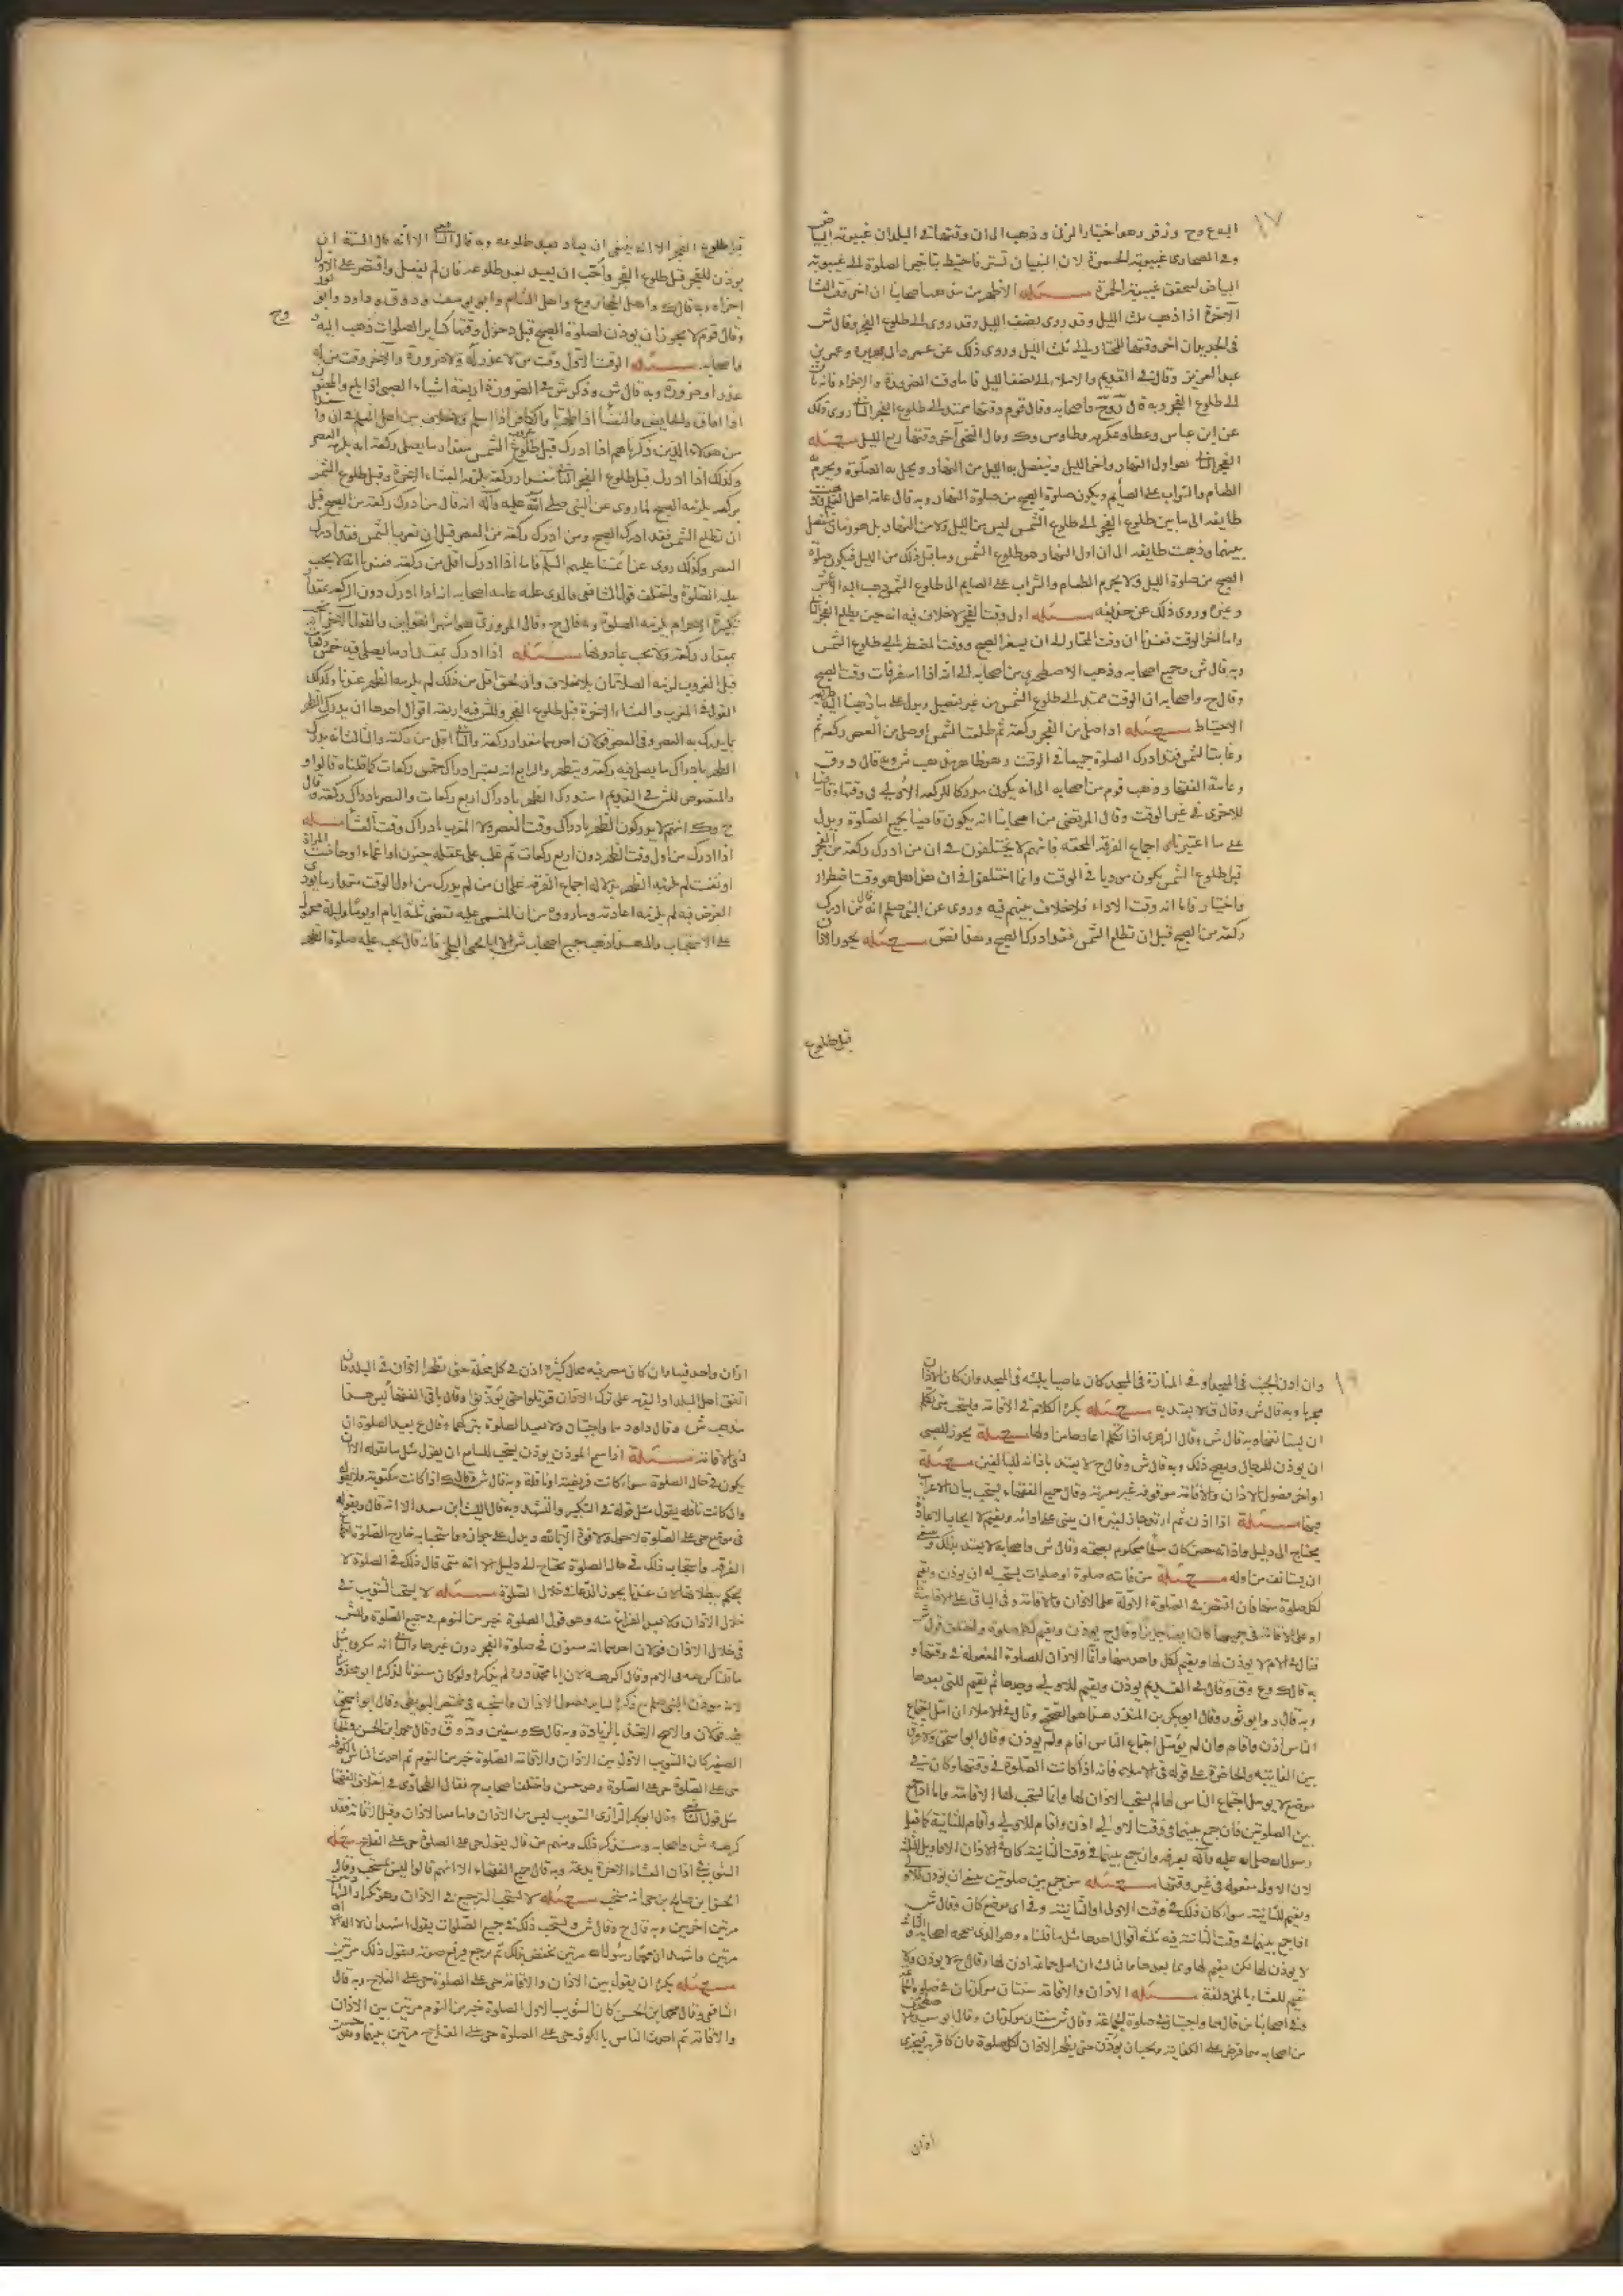 ١٧
وزفر وهو اختيار المزنى وذهب الى ان وقتها فى البلدان غيبوبة البياض
وفى الصحارى غيبوبة الحمرة لان البنيان تستر فاحتيط بتاخير الصلوة الى غيبوبة
البياض ليتحقق غيبوبة الحمرة مسئله الاظهر من مذهب اصحابنا ان اخر وقت العشا
الآخرة اذا ذهب ثلث الليل وقد روى نصف الليل وقد روى الى طلوع الفجر وقال ش
فى الجديد ان اخر وقتها المختار الى ثلث الليل وروى ذلك عن عمر وابى هريرة وعمر بن
عبد العزيز وقال فى القديم والاملاء الى نصف الليل فاما وقت الضرورة والاجزاء فانه باق
الى طلوع الفجر وبه قال واصحابه وقال قوم وقتها ممتد الى طلوع الفجر الثانى روى ذلك
عن ابن عباس وعطاو عكرمه وطاوس وك وقال النخعى آخر وقتها ربع الليل مسئله
الفجر الثانى هو اول النهار وآخر الليل وينفصل به الليل من النهار ويحل به الصلوة ويحرم به
الطعام والشراب على الصايم ويكون صلوة الصبح من صلوة النهار وبه قال عامة اهل العلم وذهبت
طايفه الى ما بين طلوع الفجر الى طلوع الشمس ليس من الليل ولا من النهار بل هو زمان منفصل
بينهما وذهبت طايفه الى ان اول النهار هو طلوع الشمس وما قبل ذلك من الليل فيكون صلوة
الصبح من صلوة الليل ولا يحرم الطعام والشراب على الصايم الى طلوع الشمس ذهب اليه الاعمش
وغيره وروى ذلك عن حذيفه مسئله اول وقت الفجر لا خلاف فيه انه حين يطلع الفجر الثانى
واما آخر الوقت فعندنا ان وقت المختار الى ان يسفر الصبح ووقت المضطر الى طلوع الشمس
وبه قال ش وجميع اصحابه وذهب الاصطخرى من اصحابه الى انه اذا اسفر فات وقت الصبح
وقال ح واصحابه ان الوقت ممتد الى طلوع الشمس من غير تفصيل دليل على ما ذهبنا اليه طريقه
الاحتياط مسئله اذا صلى من الفجر ركعة ثم طلعت الشمس او صلى من العصر ركعة ثم
غابت الشمس فقد ادرك الصلوة جميعا فى الوقت وهو ظاهر مذهب ش
وعامة الفقهاء وذهب قوم من اصحابه الى انه يكون مدركا للركعة الاولى فى وقتها وقاضيا
للاخرى فى غير الوقت وقال المرتضى من اصحابنا انه يكون قاضيا لجميع الصلوة ويدل
على ما اعتبرناه اجماع الفرقه المحقه فانهم لا يختلفون فى ان من ادرك ركعة من الفجر
قبل طلوع الشمس يكون موديا فى الوقت وانما اختلفوا فى ان هذا هل هو وقت اضطرار
واختيار فاما انه وقت الاداء فلا خلاف بينهم فيه وروى عن النبى صلعم انه قال من ادرك
ركعة من الصبح قبل ان تطلع الشمس فقد ادرك الصبح وهذا نص مسئله يجوز الاذان
قبل طلوع
قبل طلوع الفجر الا انه ينبغى ان يعاد بعد طلوعه وبه قال الشافعى الا انه قال السنة ان
يوذن للفجر قبل طلوع الفجر واحب ان يعيد بعد طلوعه فان لم يفعل واقتصر على الاول
اجزاه وبه قال ك واهل الحجاز وع واهل الشام وابو يوسف ود وق وداود وابو ثور
وقال قوم لا يجوز ان يوذن لصلوة الصبح قبل دخول وقتها كساير الصلوات ذهب اليه
وح
واصحابه مسئله الوقت الاول وقت من لا عذر له ولا ضرورة والآخر وقت من له
عذر او ضرورة وبه قال ش وذكر ش فى الضرورة اربعة اشياء الصبى اذا بلغ والمجنون
اذا افاق والحايض والنفساء اذا طهرتا والكافر اذا اسلم ولا خلاف بين اهل العلم فى ان واحدا
من هولاء الذين ذكرناهم اذا ادرك قبل غروب الشمس مقدار ما يصلى ركعة انه يلزمه العصر
وكذلك اذا ادرك قبل طلوع الفجر الثانى مقدار ركعة يلزمه العشاء الآخرة وقبل طلوع الشمس
بركعة يلزمه الصبح لما روى عن النبى صلى الله عليه وآله انه قال من ادرك ركعة من الصبح قبل
ان تطلع الشمس فقد ادرك الصبح ومن ادرك ركعة من العصر قبل ان تغرب الشمس فقد ادرك
العصر وكذلك روى عن ائمتنا عليهم السلم فاما اذا ادرك اقل من ركعة فعندنا انه لا يجب
عليه الصلوة واختلف قول الشافعى فالذى عليه عامة اصحابه انه اذا ادرك دون الركعة بمقدار
تكبيرة الاحرام يلزمه الصلوة وبه قال ح وقال المروزى هو اشهر القولين والقول الآخر انه
بمقدار ركعة ولا يجب بما دونها مسئله اذا ادرك بمقدار ما يصلى فيه خمس ركعات
قبل الغروب لزمه الصلاتان بلا خلاف وان لحق اقل من ذلك لم يلزمه الظهر عندنا وكذلك
القول فى المغرب والعشاء الآخرة قبل طلوع الفجر وللش فيه اربعة اقوال احدها ان يدرك الظهر
بما يدرك به العصر وفى العصر قولان احدهما مقدار ركعة والثانى اقل من ركعة والثالث انه يدرك
الظهر بادراك ما يصلى فيه ركعة ويتطهر والرابع انه يعتبر ادراك خمس ركعات كما قلناه قالوا و
والمنصوص للش فى القديم انه يدرك الظهر بادراك اربع ركعات والعصر بادراك ركعة وقال
ح وك انهم لا يدركون الظهر بادراك وقت العصر ولا المغرب بادراك وقت العشاء مسئله
اذا ادرك من اول وقت الظهر دون اربع ركعات ثم غلب على عقله بجنون او اغماء او حاضت المراة
او نفست لم يلزمه الظهر اجماع الفرقة على ان من لم يدرك من اول الوقت مقدار ما يودى
الفرض فيه لم يلزمه اعادته وما روى من ان المغمى عليه يقضى ثلثة ايام او يوما وليلة محمول
على الاستحباب والى هذا ذهب جميع اصحاب ش الا ابا يحيى البلخى فانه قال يجب عليه صلوة الظهر
١٩
وان اذن الجنب فى المسجد او فى المنارة فى المسجد كان عاصيا بلبثه فى المسجد وان كان الاذان
مجزيا وبه قال ش وقال ق لا يعتد به مسئله يكره الكلام فى الاقامة ويستحب متى تكلم
ان يستانفها وبه قال ش وقال الزهرى اذا تكلم اعادها من اولها مسئله يجوز للصبى
ان يوذن للرجال ويصح ذلك وبه قال ش وقال ح لا يعتد باذانه للبالغين مسئله
اواخر فصول الاذان والاقامة موقوفة غير معربة وقال جميع الفقهاء يستحب بيان الاعراب
فيها مسئله اذا اذن ثم ارتد جاز لغيره ان يبنى على اذانه ويقيم لا ايجاب الاعادة
يحتاج الى دليل واذانه حين كان مسلما محكوم بصحته وقال ش واصحابه لا يعتد بذلك وينبغى
ان يستانف من اوله مسئله من فاتته صلوة او صلوات يستحب له ان يوذن ويقيم
لكل صلوة منها فان اقتصر فى الصلوة الاولة على الاذان والاقامة وفى الباقى على الاقامة
او على الاقامة فى جميعها كان ايضا جايزا وقال ح يوذن ويقيم لكل صلوة واختلف قول ش
فقال فى الام لا يوذن لها ويقيم لكل واحد منها وانما الاذان للصلوة المفعولة فى وقتها و
به قال ك وع وق وقال فى القديم يوذن ويقيم للاولى وحدها ثم يقيم للتى بعدها
وبه قال د وابو ثور وقال ابو بكر بن المنذر هذا هو الصحيح وقال فى الاملاء ان امل اجتماع
الناس اذن واقام وان لم يؤمل اجتماع الناس اقام ولم يوذن وقال ابو اسحق ولا فرق
بين الفائتة والحاضرة على قوله فى الاملاء فانه اذا كانت الصلوة فى وقتها وكان فى
موضع لا يومل اجتماع الناس لها لم يستحب الاذان لها وانما يستحب لها الاقامة واما اذا جمع
بين الصلوتين فان جمع بينهما فى وقت الاولى اذن واقام للاولى واقام للثانية كما فعل
رسول الله صلى الله عليه وآله بعرفه وان جمع بينهما فى وقت الثانية كان فى الاذان الاقاويل الثلثة
لان الاولى مفعولة فى غير وقتها مسئله من جمع بين صلوتين ينبغى ان يوذن للاولى
ويقيم للثانية سواء كان ذلك فى وقت الاولى او الثانية وفى اى موضع كان وقال ش
اذا جمع بينهما فى وقت الثانية فيه ثلثة اقوال احدها مثل ما قلناه وهو الذى صححه اصحابه والثانى
لا يوذن لها لكن يقيم لها ولما بعدها والثالث ان امل جماعة اذن لها وقال ح لا يوذن ولا
يقيم للعشاء بالمزدلفة مسئله الاذان والاقامة سنتان موكدتان فى صلوة الجماعة
وفى اصحابنا من قال هما واجبان فى صلوة الجماعة وقال ش سنتان موكدتان وقال ابو سعيد الاصطخرى
من اصحابه هما فرض على الكفاية ويجب ان يوذن حتى يظهر الاذان لكل صلوة فان كان قرية فيجزى
اذان
اذان واحد فيها وان كان مصر فيه محال كثيرة اذن فى كل محلة حتى يظهر الاذان فى البلد فان
اتفق اهل البلد او القرية على ترك الاذان قوتلوا حتى يؤذنوا وقال باقى الفقهاء ليس هذا
مذهب ش وقال داود هما واجبان ولا يعيد الصلوة بتركهما وقال ع يعيد الصلوة ان
مسئله اذا سمع الموذن يوذن يستحب للسامع ان يقول مثل ما يقوله الا ان
يكون فى حال الصلوة سواء كانت فريضة او نافلة وبه قال ش وقال ك اذا كانت مكتوبة فلا يقول
وان كانت نافلة يقول مثل قوله فى التكبير والتشهد وبه قال الليث ابن سعد الا انه قال ويقول
فى موضع حى على الصلوة لا حول ولا قوة الا بالله ويدل على جوازه واستحبابه خارج الصلوة اجماع
الفرقة واستحباب ذلك فى حال الصلوة يحتاج الى دليل الا انه متى قال ذلك فى الصلوة لا
يحكم ببطلانها لان عندنا يجوز الدعاء فى خلال الصلوة مسئله لا يستحب التثويب فى
خلال الاذان ولا بعد الفراغ منه وهو قول الصلوة خير من النوم فى جميع الصلوة وللش
فى خلال الاذان قولان احدهما انه مسنون فى صلوة الفجر دون غيرها والثانى انه مكروه مثل
ما قلناه كرهه فى الام وقال اكرهه لان ابا محذورة لم يذكره ولو كان مسنونا لذكره ابو محذورة
لانه موذن النبى صلعم مع ذكره لساير فصول الاذان واستحبه فى مختصر البويطى وقال ابو اسحق
فيه قولان والاصح الاخذ بالزيادة وبه قال ك وسفين ود وق وقال محمد ابن الحسن فى الجامع
الصغير كان التثويب الاول بين الاذان والاقامة الصلوة خير من النوم ثم احدث الناس بالكوفة
حى على الصلوة حى على الصلوة وهو حسن واختلف اصحاب ح فقال الطحاوى فى اختلاف الفقهاء
مثل قول الشافعى وقال ابو بكر الرازى التثويب ليس من الاذان واما بعد الاذان وقبل الاقامة فقد
كرهه ش واصحابه وسنذكر ذلك ومنهم من قال يقول حى على الصلوة حى على الفلاح مسئله
التثويب فى اذان العشاء الآخرة بدعة وبه قال جميع الفقهاء الا انهم قالوا ليس بمستحب وقال
الحسن ابن صالح بن حى انه مستحب مسئله لا يستحب الترجيع فى الاذان وهو تكرار الشهادتين
مرتين اخريين وبه قال ح وقال ش يستحب ذلك فى جميع الصلوات يقول اشهد ان لا اله الا الله
مرتين واشهد ان محمدا رسول الله مرتين يخفض بذلك ثم يرجع فيرفع صوته فيقول ذلك مرتين
مسئله يكره ان يقول بين الاذان والاقامة حى على الصلوة حى على الفلاح وبه قال
الشافعى وقال محمد ابن الحسن كان التثويب الاول الصلوة خير من النوم مرتين بين الاذان
والاقامة ثم احدث الناس بالكوفه حى على الصلوة حى على الفلاح مرتين بينهما وهو حسن